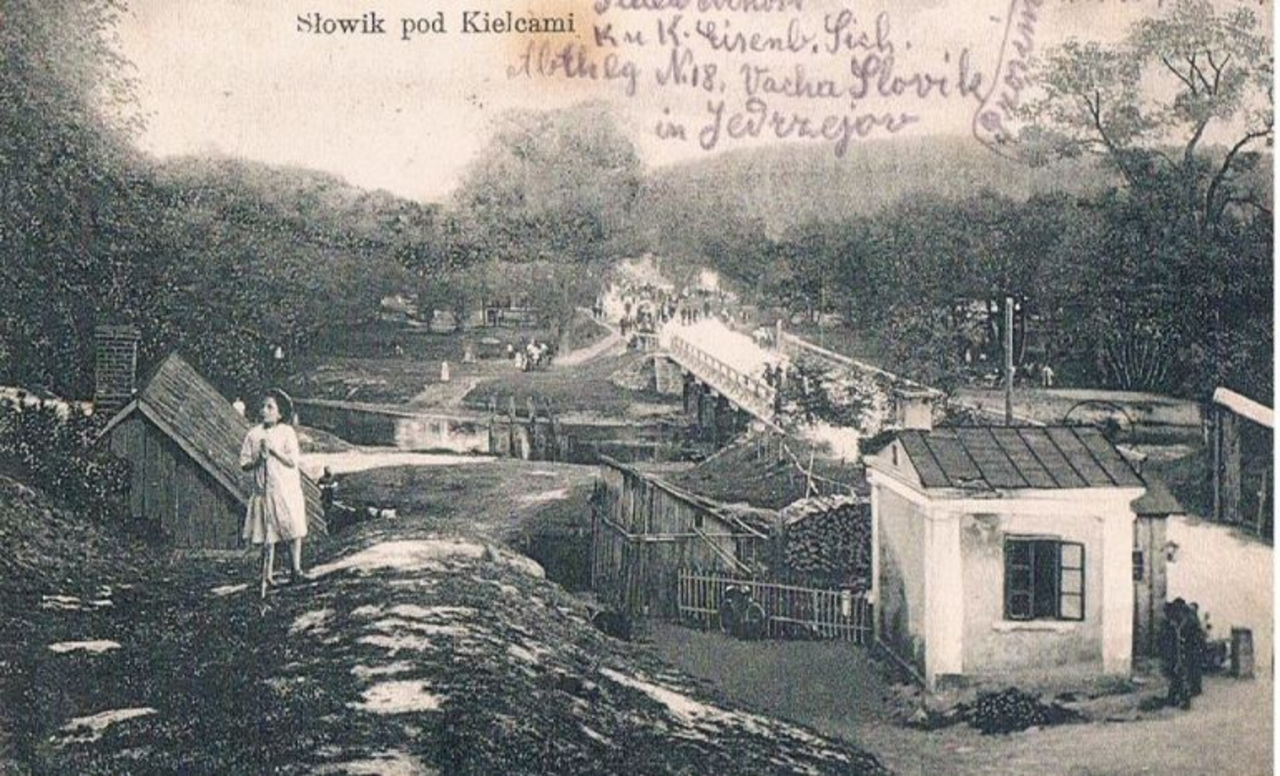 Słowik pod Kielcami
K u K. Eisenb. Sich.
Abtheilg N.18. Vacha Slovik
in Jedrzejov